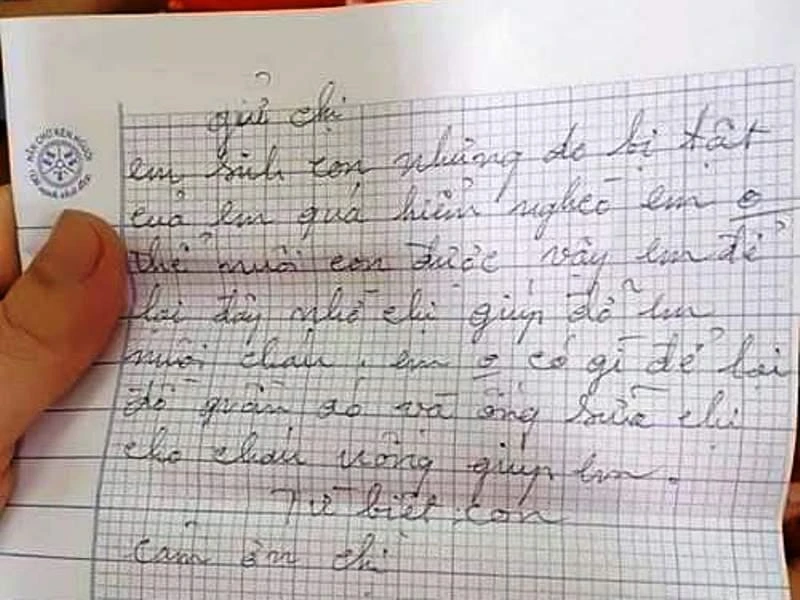 gửi chị
em sinh con nhưng do bị tật
cuả em quá hiểm nghèo em o
thể nuôi con được vậy em để
lại đây nhờ chị giúp đỡ em
nuôi cháu. em o có gì để lại
đồ quần áo và ống sữa chị
cho cháu uống giúp em.
Từ biệt con
cảm ơn chị